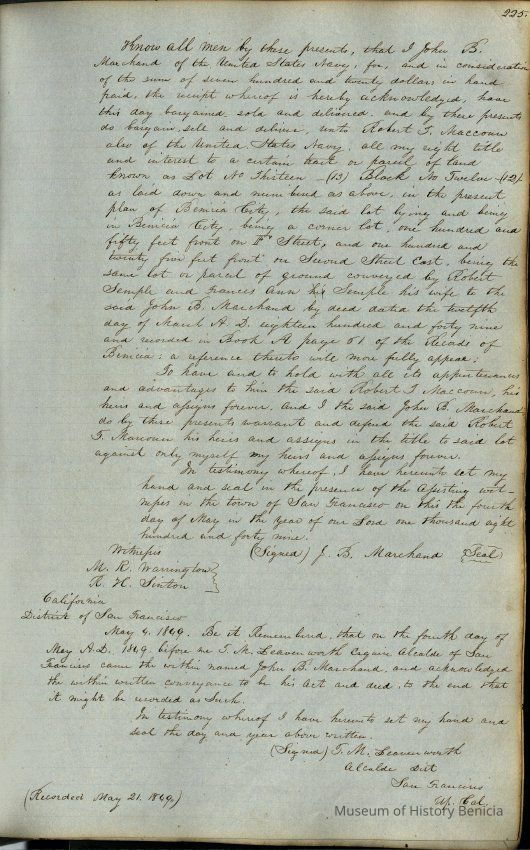 225.
Know all men by these presents, that I John B.
Marchand of the United States Navy, for, and in consideration
of the sum of seven hundred and twenty dollars, in hand
paid, the receipt whereof is hereby acknowledged, have
this day bargained, sold and delivered, and by these presents
do bargain, sell and deliver, unto Robert T. Maccoun
also of the United States Navy, all my right title
and interest to a certain tract or parcel of land
known as Lot No Thirteen (13) Block No Twelve (12)
as laid down and numbered as above, in the present
plan of Benicia City, the said lot lying and being
in Benicia City, being a corner lot, one hundred and
fifty feet front on F Street, and one hundred and
twenty five feet front on Second Street East, being the
same lot or parcel of ground conveyed by Robert
Semple and Frances Ann his Semple his wife to the
said John B. Marchand by deed dated the twelfth
day of March A. D. eighteen hundred and forty nine
and recorded in Book A page 61 of the Records of
Benicia: a reference thereto will more fully appear:
To have and to hold with all its appurtenances
and advantages to him the said Robert T. Maccoun, his
heirs and assigns forever, and I the said John B. Marchand
do by these presents warrant and defend the said Robert
T. Maccoun his heirs and assigns in the title to said lot
against only myself my heirs and assigns forever.
In testimony whereof, I have hereunto set my
hand and seal in the presence of the attesting wit-
nesses in the town of San Francisco on this the fourth
day of May in the year of our Lord one thousand eight
hundred and forty nine.
Witness (Signed) J. B. Marchand (Seal)
M. R. Warrington
R. H. Sinton
California
District of San Francisco
May 4. 1849. Be it Remembered, that on the fourth day of
May A.D. 1849. before me T. M. Leavenworth Esquire Alcalde of San
Francisco came the within named John B. Marchand, and acknowledged
the within written conveyance to be his act and deed, to the end that
it might be recorded as such.
In testimony whereof I have hereunto set my hand and
seal the day and year above written.
(Signed) T. M. Leavenworth
Alcalde Dist
San Francisco
Up. Cal.
(Recorded May 21. 1849)
Museum of History Benicia